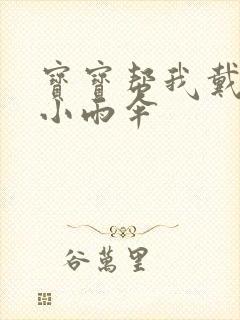 寶寶帮我戴
小雨伞
谷萬里